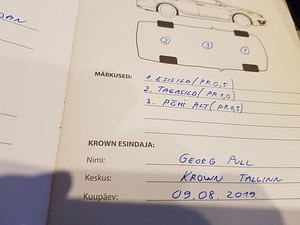 2 3 1
MÄRKUSED: 1. ESISILD (PR 0,5)
2. TAGASILD (PR 1,0)
3. PÕHI ALT (PR 0,5)
KROWN ESINDAJA:
Nimi: GEORG PULL
Keskus: KROWN TALLINN
Kuupäev: 09.08.2019.